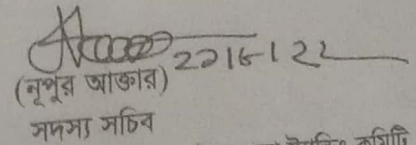 ২১।৮।২২
(নূপুর আক্তার)
সদস্য সচিব
কমিটি